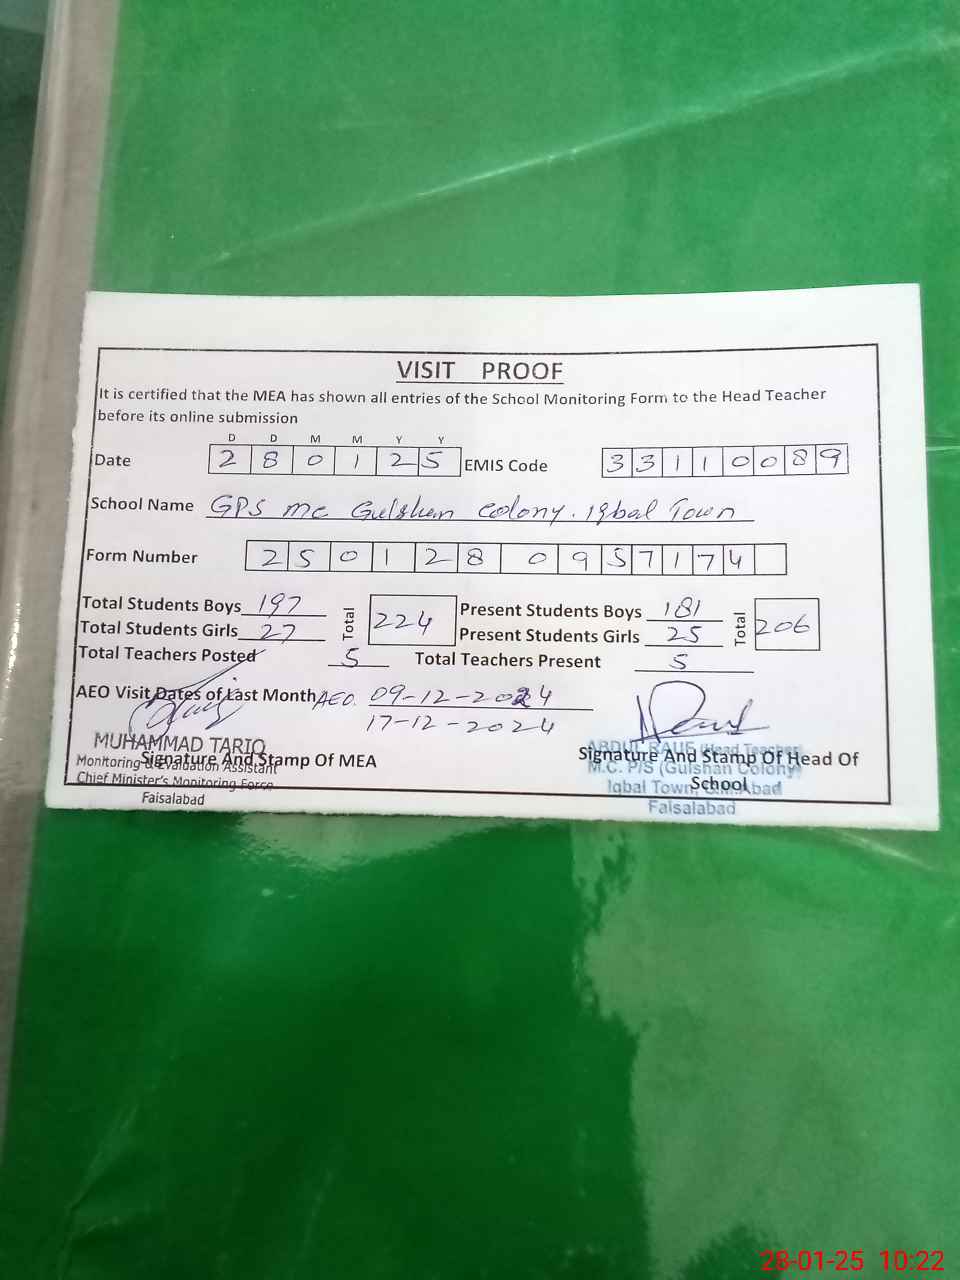 VISIT PROOF
It is certified that the MEA has shown all entries of the School Monitoring Form to the Head Teacher
before its online submission
D D M M Y Y
Date 2 8 0 1 2 5 EMIS Code 3 3 1 1 0 0 8 9
School Name GPS mc Gulshan Colony. Iqbal Town
Form Number 2 5 0 1 2 8 0 9 5 7 1 7 4
Total Students Boys 197 Total 224 Present Students Boys 181 Total 206
Total Students Girls 27 Present Students Girls 25
Total Teachers Posted 5 Total Teachers Present 5
AEO Visit Dates of Last Month AEO. 09-12-2024
17-12-2024
MUHAMMAD TARIQ
Monitoring & Evaluation Assistant
Chief Minister's Monitoring Force
Faisalabad
Signature And Stamp Of MEA
ABDUL RAUF (Head Teacher)
M.C. P/S (Gulshan Colony)
Iqbal Town, G.M.Abad
Faisalabad
Signature And Stamp Of Head Of
School
28-01-25 10:22